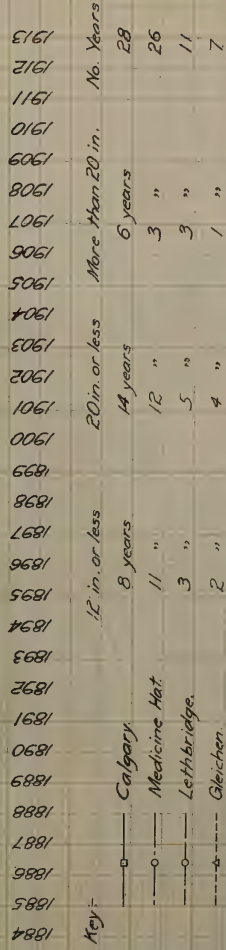 1884 1885 1886 1887 1888 1889 1890 1891 1892 1893 1894 1895 1896 1897 1898 1899 1900 1901 1902 1903 1904 1905 1906 1907 1908 1909 1910 1911 1912 1913
Key:- 12 in. or less 20 in. or less More than 20 in. No. Years
Calgary. 8 years 14 years 6 years 28
Medicine Hat. 11 " 12 " 3 " 26
Lethbridge. 3 " 5 " 3 " 11
Gleichen. 2 " 4 " 1 " 7